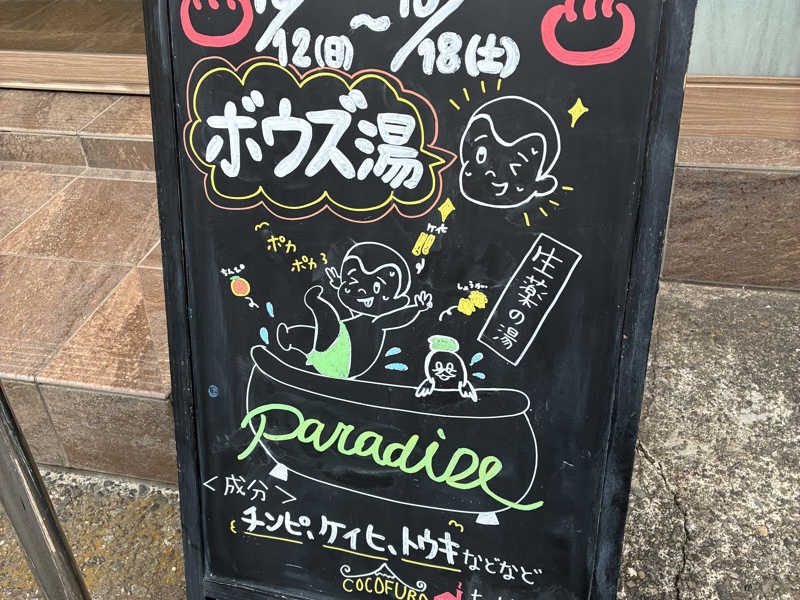 12(日)~10/18(土)
ボウズ湯
ポカ
ポカ
ケイヒ
ちんぴ
しょうが
生薬の湯
Paradise
<成分>
チンピ、ケイヒ、トウキなどなど
COCOFURO